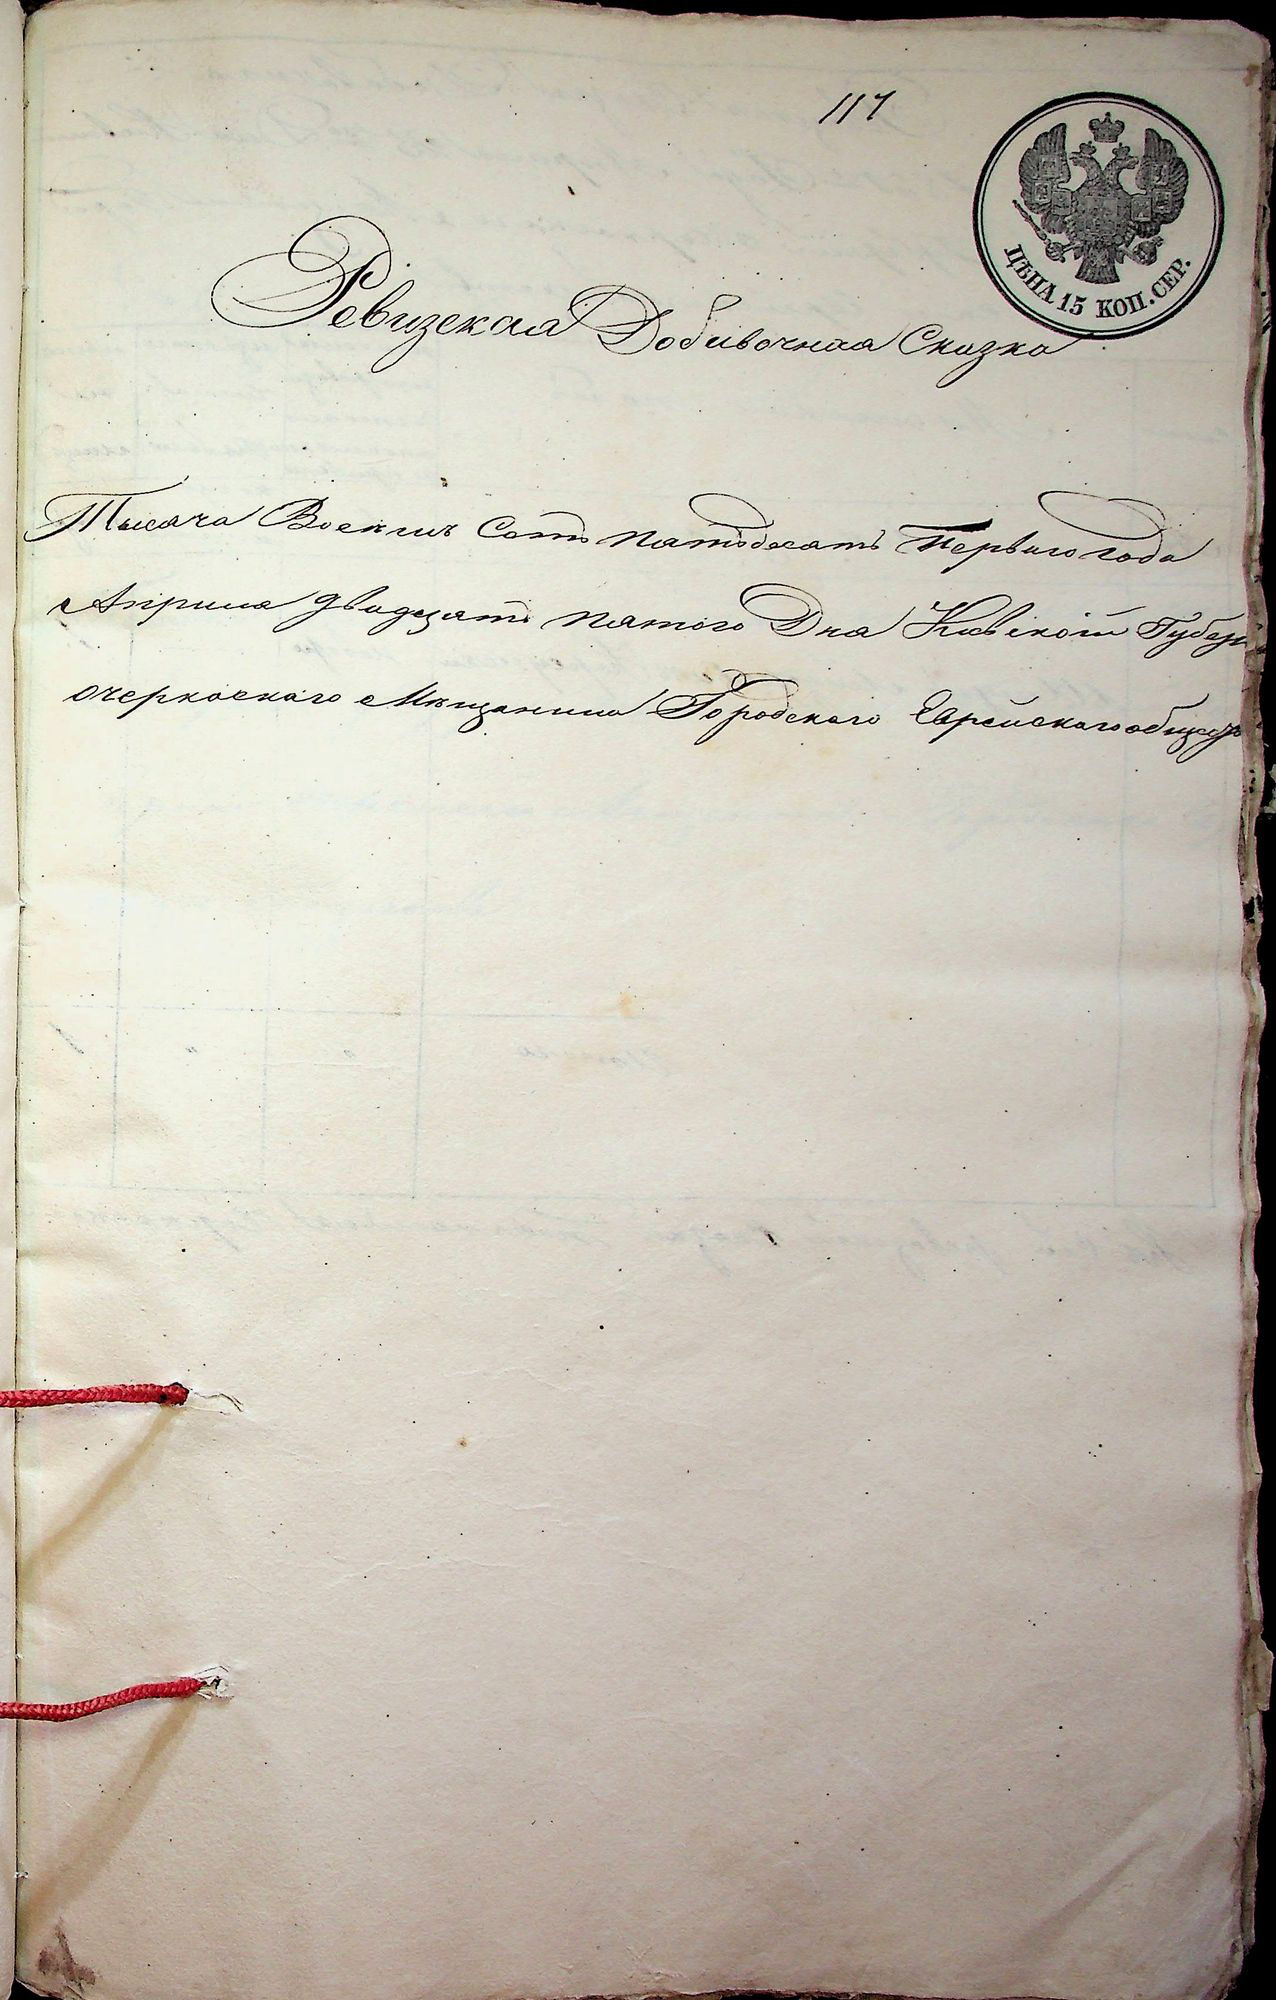 117
ЦѢНА 15 КОП. СЕР.
Ревизская Добавочная Сказка
Тысяча Восемь Сотъ пятьдесятъ Перваго года
Априля двадцать пятого Дня Кіевской Губер
очеркаскаго Мѣщанина Городскаго Еврейского общест